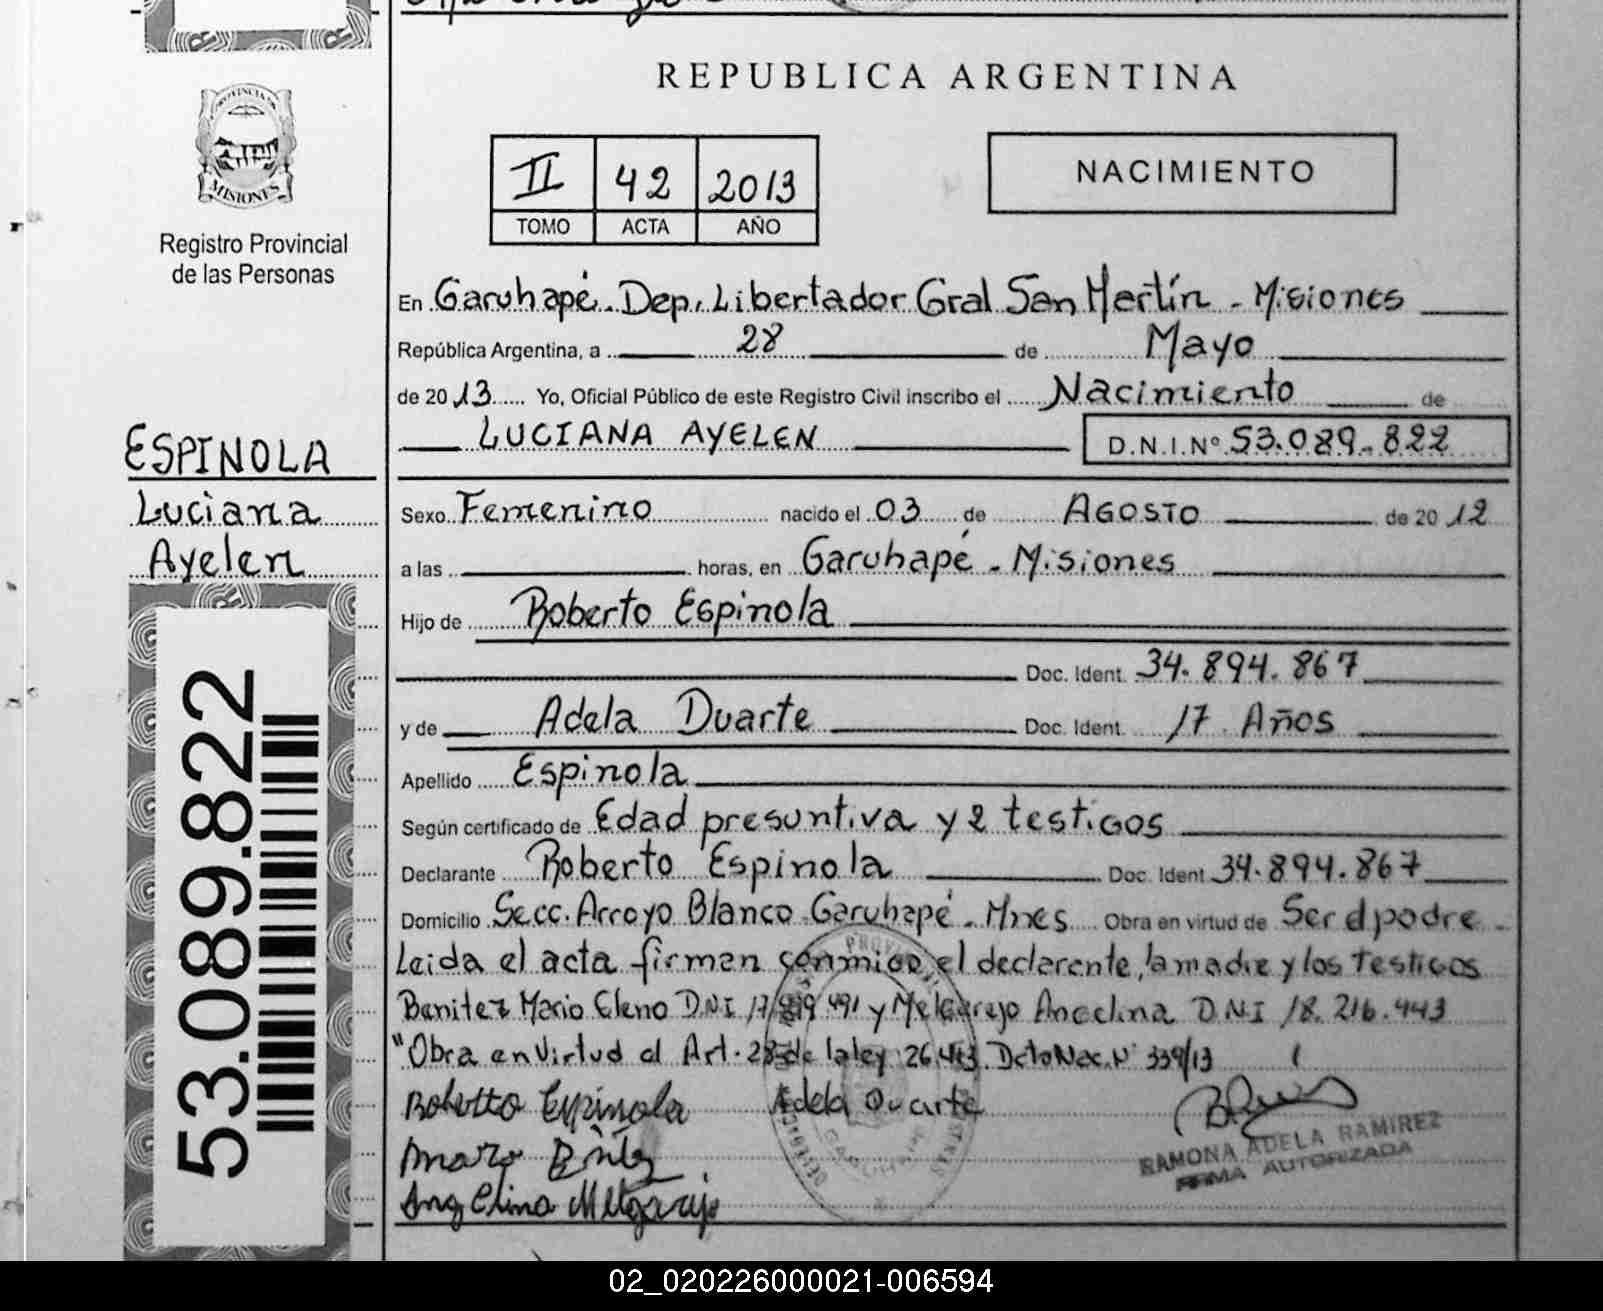 REPUBLICA ARGENTINA
II 42 2013
TOMO ACTA AÑO
NACIMIENTO
PROVINCIA DE
MISIONES
Registro Provincial
de las Personas
ESPINOLA
Luciana
Ayelen
53.089.822
En Garuhapé. Dep. Libertador Gral San Martín - Misiones
República Argentina, a 28 de Mayo
de 2013 Yo, Oficial Público de este Registro Civil inscribo el Nacimiento de
LUCIANA AYELEN D.N.I.Nº 53.089.822
Sexo Femenino nacido el 03 de AGOSTO de 2012
a las horas, en Garuhapé - Misiones
Hijo de Roberto Espinola
Doc. Ident. 34.894.867
y de Adela Duarte Doc. Ident. 17 Años
Apellido Espinola
Según certificado de Edad presuntiva y 2 testigos
Declarante Roberto Espinola Doc. Ident 34.894.867
Domicilio Secc. Arroyo Blanco - Garuhapé - Mnes Obra en virtud de Ser el padre -
Leida el acta firman conmigo, el declarante, la madre y los testigos
Benitez Mario Eleno D.N.I y Melgarejo Angelina D.N.I 18.216.443
"Obra en virtud al Art. 28 de la ley 26.413. Dcto Nac. Nº 339/13
Roberto Espinola Adela Duarte
Mario Benitez
Angelina Melgarejo
RAMONA ADELA RAMIREZ
FIRMA AUTORIZADA
02_020226000021-006594